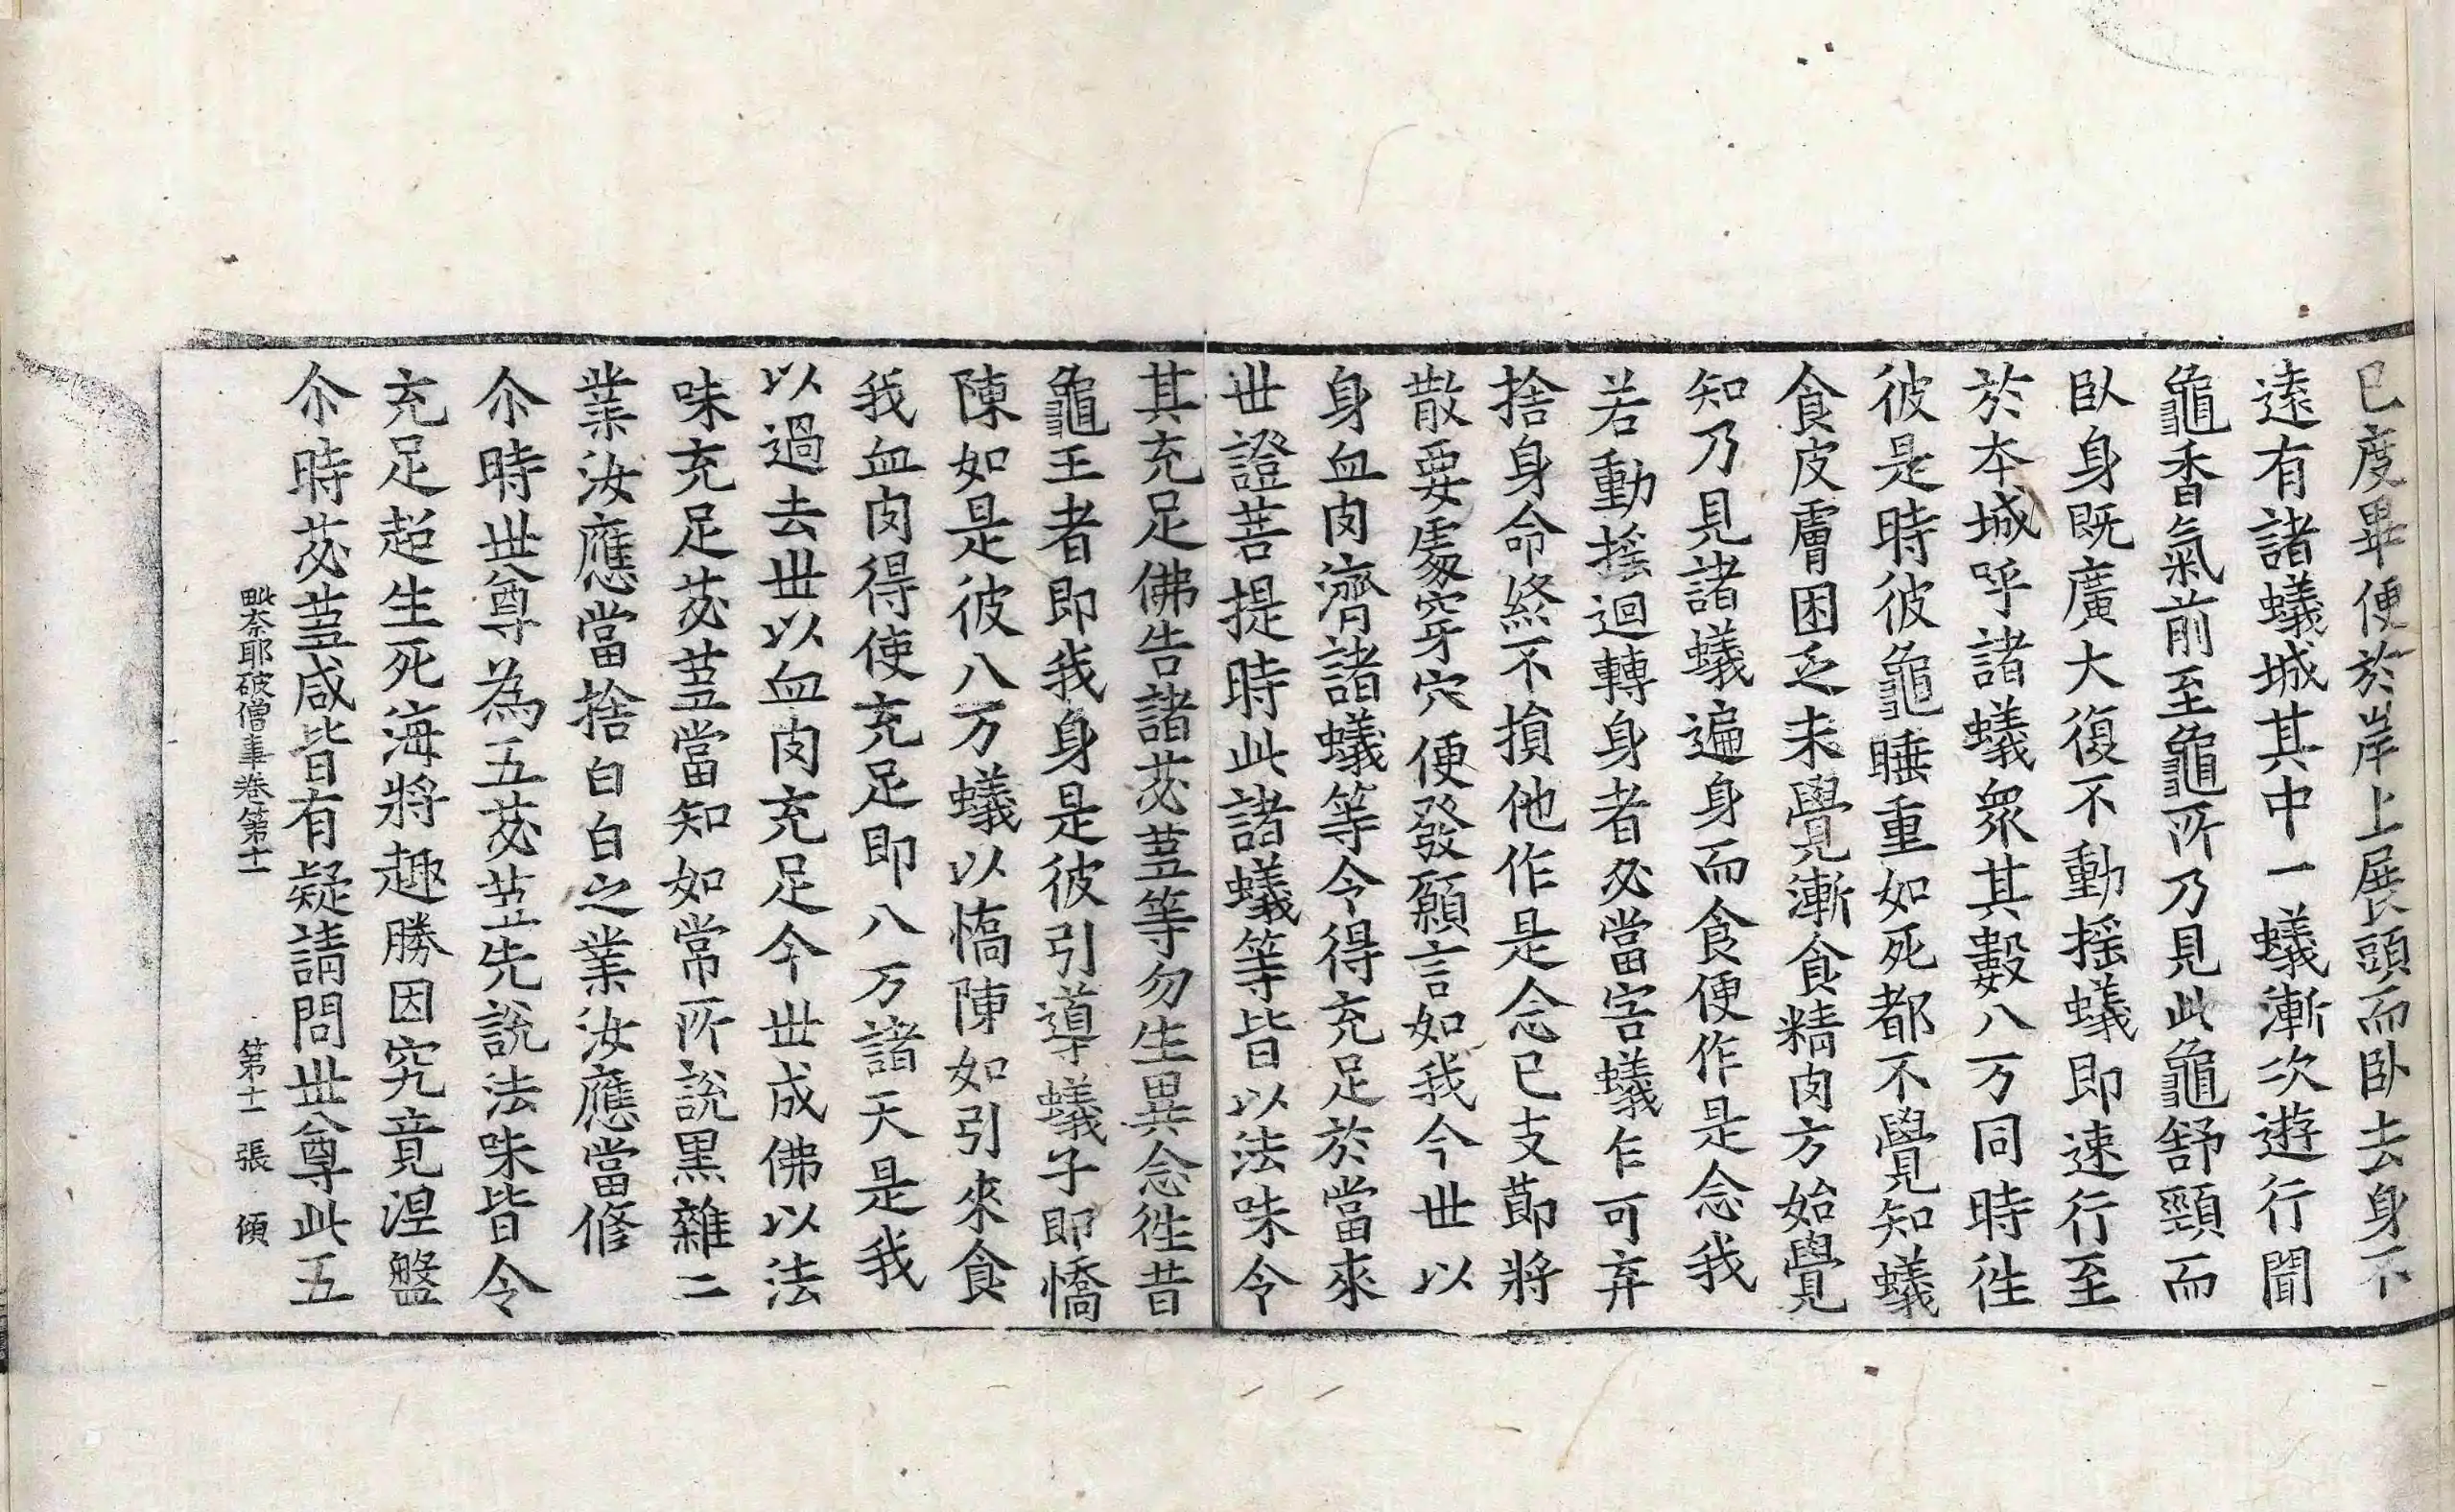 已度畢便於岸上展頭而卧去身不
遠有諸蟻城其中一蟻漸次遊行聞
龜香氣前至龜所乃見此龜舒頸而
臥身既廣大復不動揺蟻即速行至
於夲城呼諸蟻衆其數八万同時徃
彼是時彼龜睡重如死都不覺知蟻
食皮膚困乏未覺漸食精肉方始覺
知乃見諸蟻遍身而食便作是念我
若動揺迴轉身者必當害蟻乍可弃
捨身命終不損他作是念已支莭將
散要處穿穴便發願言如我今世以
身血肉濟諸蟻等令得充足於當來
世證菩提時此諸蟻等皆以法味令
其充足佛告諸苾蒭等勿生異念徃昔
龜王者即我身是彼引導蟻子即憍
陳如是彼八万蟻以憍陳如引來食
我血肉得使充足即八万諸天是我
以過去世以血肉充足今世成佛以法
味充足苾蒭當知如常所說黒雜二
業汝應當捨白白之業汝應當修
尒時世尊為五苾蒭先說法味皆令
充足超生死海將趣勝因究竟涅盤
尒時苾蒭咸皆有疑請問世尊此五
毗奈耶破僧事卷第十一 第十一張 傾